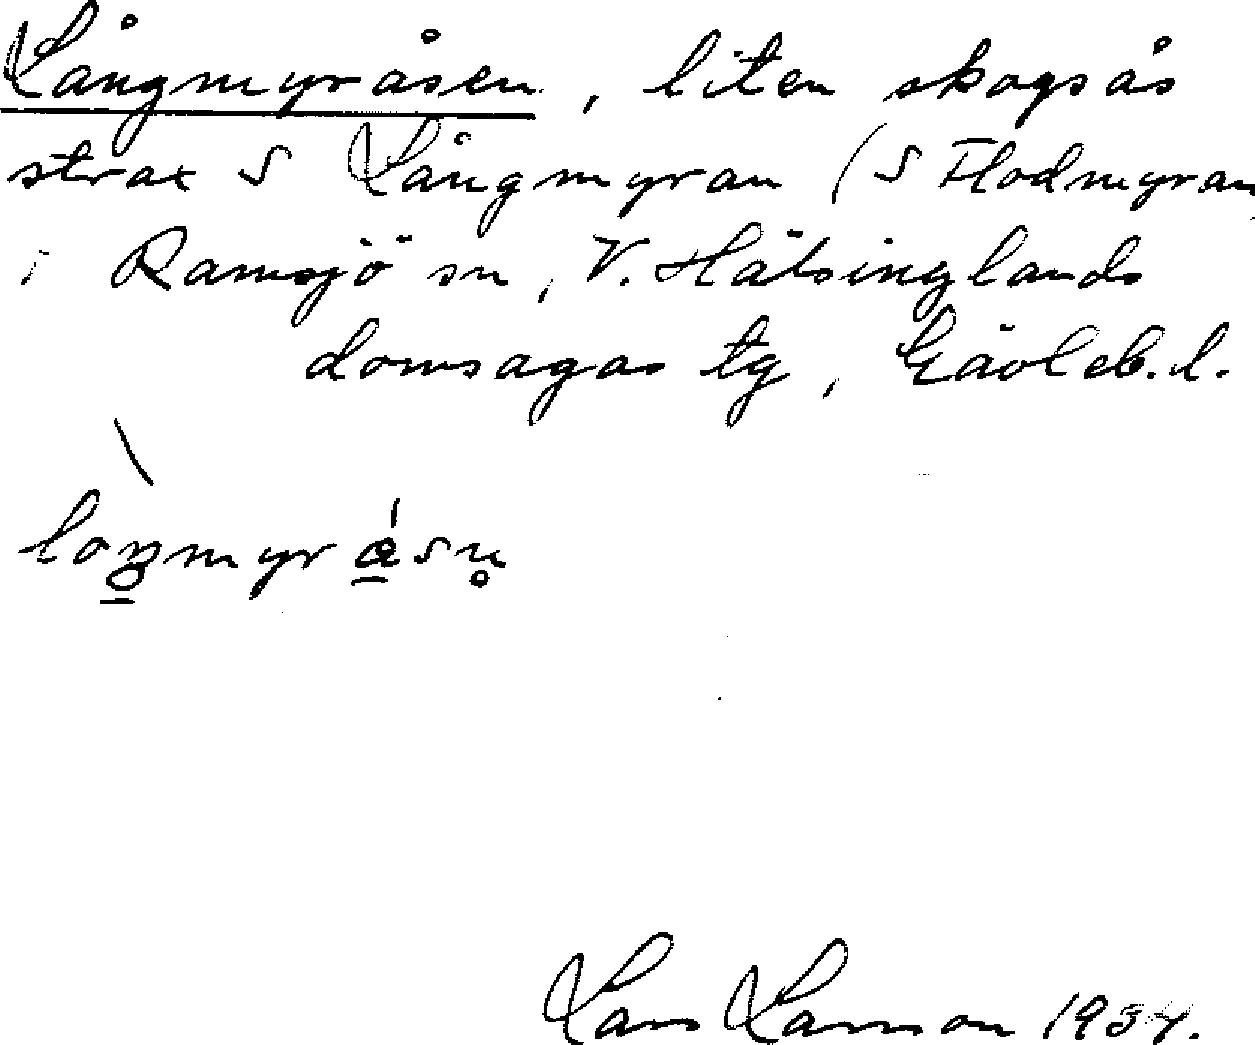 Långmyråsen, liten skogsås
strax S Långmyran (S Flodmyran
i Ramsjö sn, V. Hälsinglands
domsagas tg, Gävleb. l.
Lars Larsson 1934.